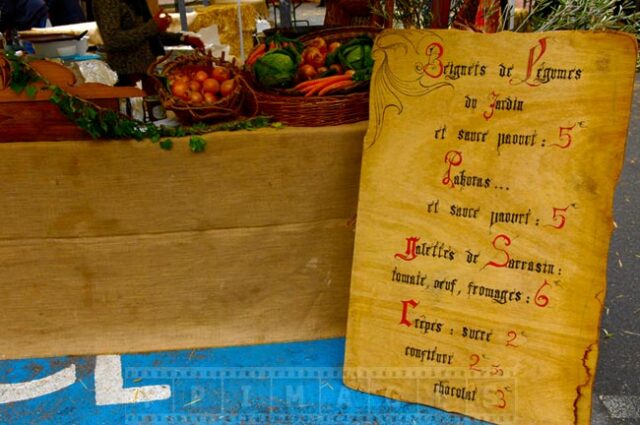 Beignets de Légumes
du Jardin
et sauce yaourt : 5€
Pakoras...
et sauce yaourt : 5€
Galettes de Sarrasin :
tomate, oeuf, fromages : 6€
Crêpes : sucre 2€
confiture 2€5
chocolat 3€
PRIMAGES